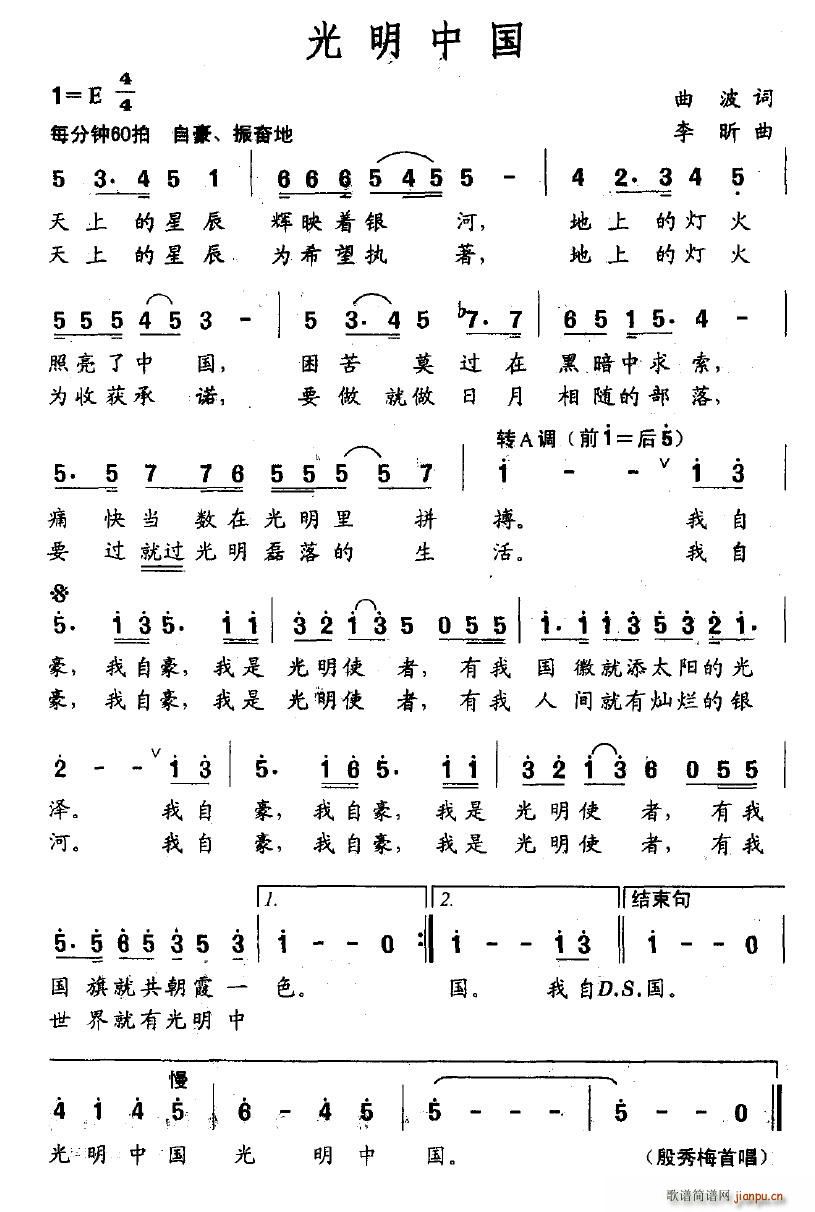 光明中国
1=E 4/4
曲波词
每分钟60拍 自豪、振奋地
李昕曲
5 3. 4 5 1 | 6 6 6 6 5 4 5 5 5 - | 4 2. 3 4 5 |
天上的星辰 辉映着银河, 地上的灯火
天上的星辰 为希望执著, 地上的灯火
5 5 5 4 5 3 - | 5 3. 4 5 b7. 7 | 6 5 1 5. 4 - |
照亮了中国, 困苦莫过在黑暗中求索,
为收获承诺, 要做就做日月相随的部落,
转A调(前1=后5)
5. 5 7 7 6 5 5 5 5 5 7 | 1 - - 1 3 |
痛快当数在光明里拼搏。 我自
要过就过光明磊落的生活。 我自
5. 1 3 5. 1 1 | 3 2 1 3 5 0 5 5 | 1. 1 1 3 5 3 2 1. |
豪,我自豪,我是光明使者,有我国徽就添太阳的光
豪,我自豪,我是光明使者,有我人间就有灿烂的银
2 - - 1 3 | 5. 1 6 5. 1 1 | 3 2 1 3 6 0 5 5 |
泽。 我自豪,我自豪,我是光明使者,有我
河。 我自豪,我自豪,我是光明使者,有我
1. 2. 结束句
5. 5 6 5 3 5 3 | 1 - - 0 :| 1 - - 1 3 || 1 - - 0 |
国旗就共朝霞一色。 国。 我自D.S.国。
世界就有光明中
慢
4 1 4 5 | 6 - 4 5 | 5 - - - | 5 - - 0 |
光明中国光明中国。
(殷秀梅首唱)
歌谱简谱网
jianpu.cn